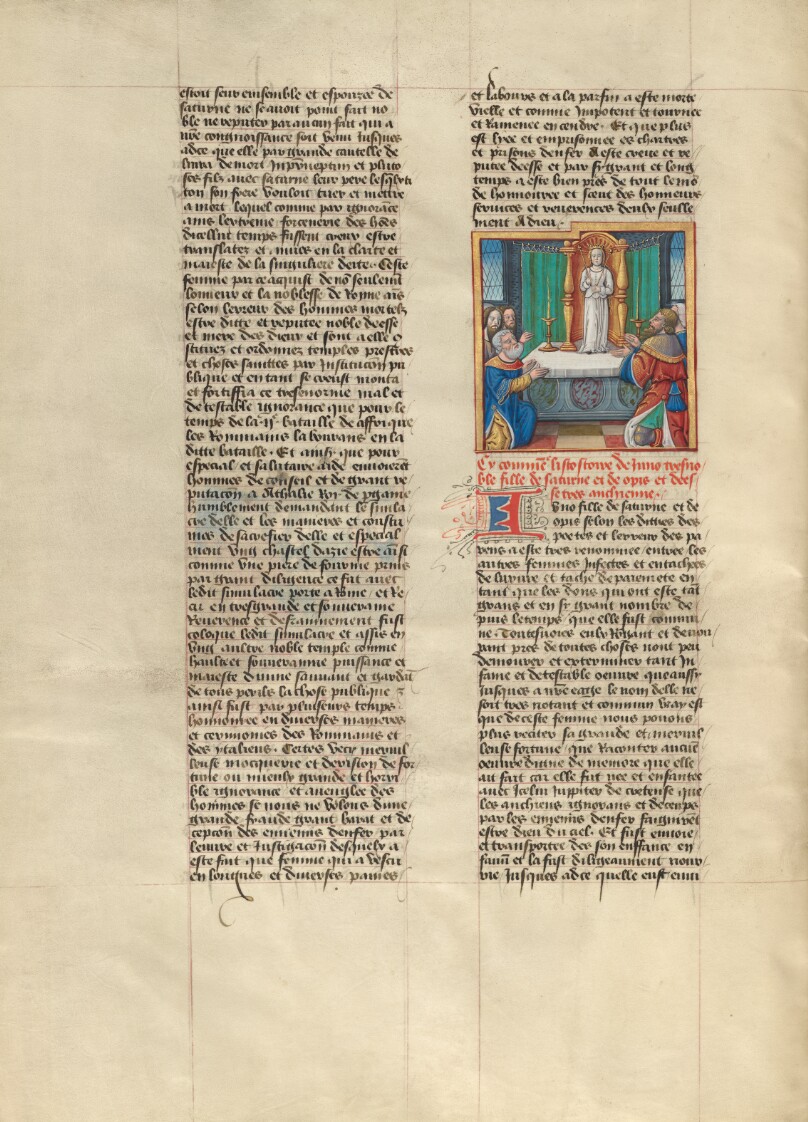 estoit seur ensemble et espousee de
saturne ne se avoit point fait no
ble ne reputer par aucun fait qui a
nr̃e congnoissance soit venu Jusques
adce que elle par grande cautelle de
livra de mort Jupiter neptun et pluto
ses filz avec saturne leur pere
ton son frere vouloit tuer et mettre
a mort lequel comme par ignorãce
ains forcenerie des hões
dicellui temps fussent venuz estre
translatez et muez en la clarte et
maieste de la singuliere deite. Ceste
femme par ce acquist de nõ seulemẽt
lonneur et la noblesse de Royne ais
selon lerreur des hommes mortelz
estre ditte et reputee noble deesse
et mere des dieux et sont a elle c
stituez et ordonnez temples prestres
et choses saintes par Institucõn pu
blique et en tant se creust monta
et fortiffia ce tresenorme mal et
detestable ignorance que pour le
temps de la .ii.e bataille de affricque
les Rommains labourans en la
ditte bataille. Et ainsi que pour
especial et salutaire aide envoierẽt
hommes de conseil et de grant re
putacõn a Athalie Roy de pgame
humblement demandant le simula
cre delle et les manieres et constu
mes de sacrefier delle et especial
ment vng chastel dazie estre ainsi
comme vne piere de fourme prins
par grant diligence ce fait avec
ledit simulacre porte a Rome et Re
ceu en tresgrande et souveraine
Reverence et derrainement fust
coloque ledit simulacre et assis en
vng aultre noble temple comme
haulte et souveraine puissance et
maieste divine sauvant et gardãt
de tous perilz la chose publique et
ainsi fust par plusieurs temps
honnouree en diverses manieres
et cerimonies des Rommains et
des ytaliens. Certes vecy merveil
leuse mocquerie et derision de for
tune ou mieulx grande et horri
ble ignorance et aveuglee des
hommes se nous ne volons dune
grande fraude grant barat et de
cepcõn des ennemis denfer par
leuvre et Instigacõn desquelz a
este fait que femme qui a vescu
en longues et diverses paines
et labours et a la parfin a este morte
vielle et comme Impotent et tournee
et Ramenee en cendre. Et que plus
est lyee et emprisonnee es chartres
et prisons denfer A este creue et re
putee deesse et par sy grant et long
temps a este bien pres de tout le mõ
de honnouree et scent des honneurs
services et reverences deulz seulle
ment A dieu.
Cy commẽce listostoire de Juno tresno
ble fille de saturne et de opis et dees
se tres anchienne.
Juno fille de saturne et de
opis selon les dittiez des
poetes et lerreur des pa
yens a este tres renommee entre les
autres femmes Infectes et entachees
de luxure et tache de parente en
tant que les dons qui ont este tãt
grans et en sy grant nombre de
puis le temps que elle fust commu
ne. Toutesvoies eulx
pant pres de toutes choses nont peu
demourer et exterminer tant In
fame et detestable oeuvre que aussy
Jusques a nr̃e eage le nom delle ne
soit tres notant et commun vray est
que de ceste femme nous povons
plus reciter sa grande et merveil
leuse fortune que Raconter aucũe
oeuvre digne de memoire que elle
ait fait car elle fut nee et enfantee
avec Icelui Juppiter de cretense que
les anchiens ignorans et deceups
par les ennemis denfer faignirẽt
estre dieu du ciel. Et fust envoiee
et transportee des son enffance en
samũ et la fust diligeaument nour
rie Jusques adce quelle eust